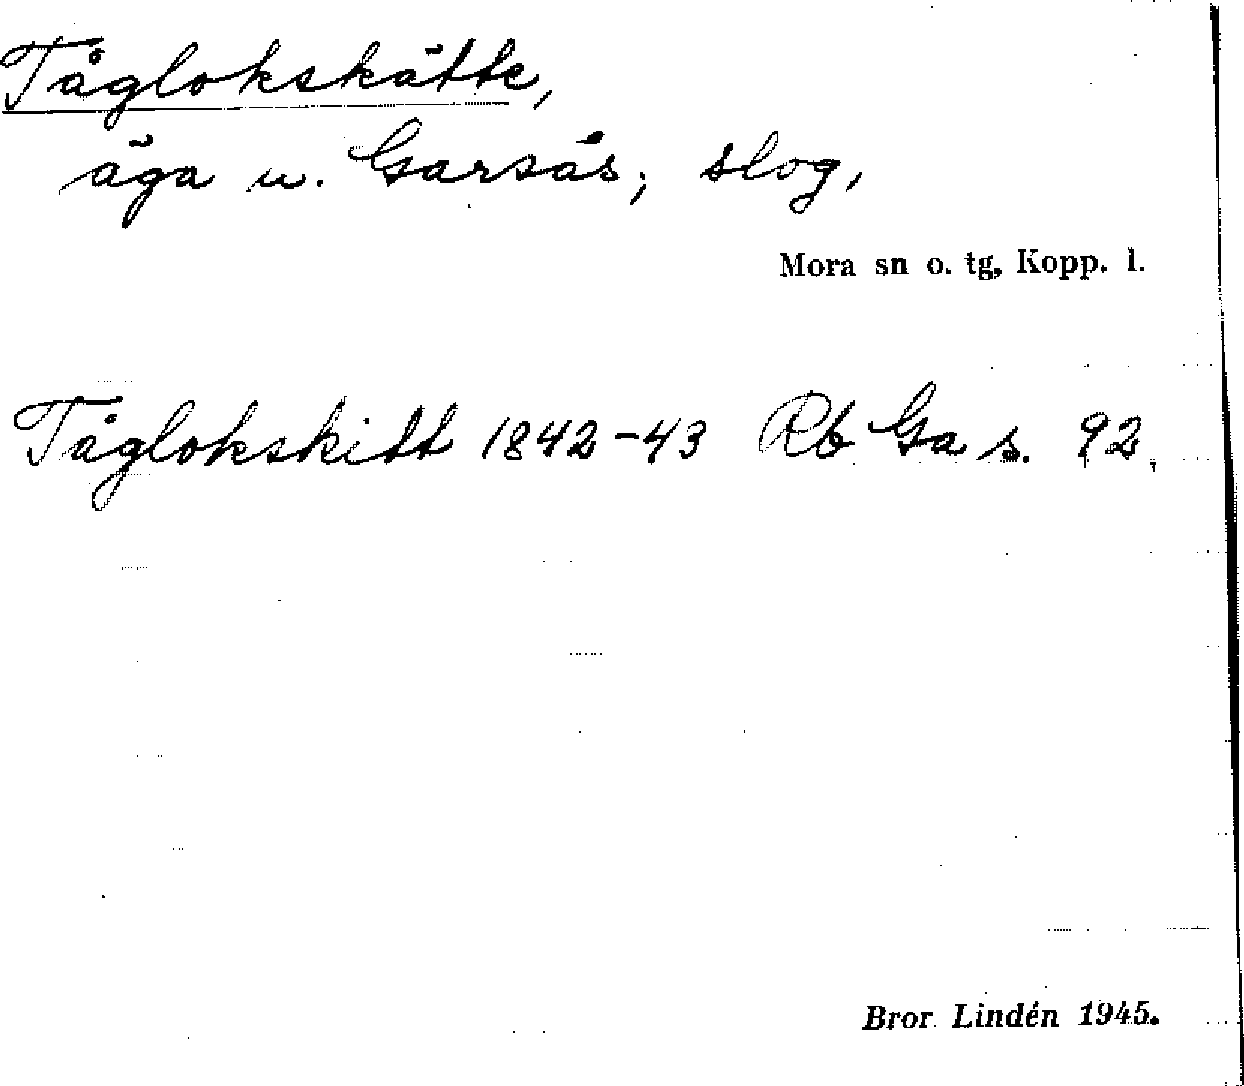 Tåglokskätte,
äga u. Garsås; slog,
Mora sn o. tg, Kopp. l.
Tåglokskitt 1842-43 Rb Ga s. 92.
Bror Lindén 1945.